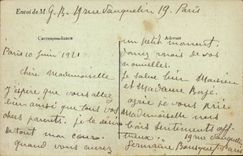 Envoi de M G.B. 19 rue Vauquelin 19. Paris
Correspondance
Adresse
Paris 10 Juin 1921
Chère Mademoiselle
J'espère que vous allez
bien ainsi que tous vos
chers parents, je le désire
de tout mon cœur.
quand vous aurez
un petit moment.
donnez moi de vos
nouvelles.
Je salue bien Monsieur
et Madame
agréez je vous prie
Mademoiselle mes
bons sentiments affectueux.
19 rue Vauquelin
Germaine Bousquet Paris